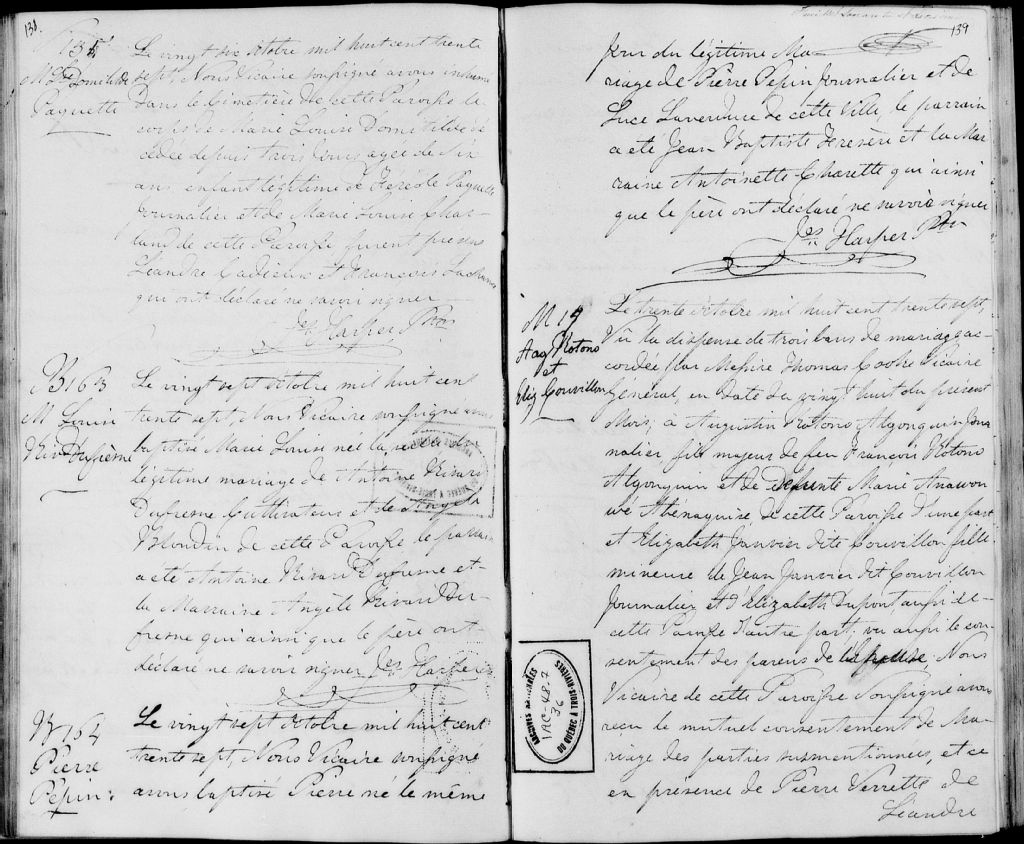 138.
S 135
M. L. Domitilde
Paquette
Le vingt six octobre mil huit cent trente
sept, Nous Vicaire soussigné avons inhumé
dans le Cimetière de cette Paroisse le
corps de Marie Louise Domitilde dé-
cédée depuis trois jours agée de six
ans enfant légitime de Paquette
Journalier et de Marie Louise Char-
land de cette Paroisse furent présens
Léandre Cadieux et François
qui ont déclaré ne savoir signer
Jes. Harper Ptre
B 163
M Louise
Riv. Dufresne
Le vingt sept octobre mil huit cent
trente sept, Nous Vicaire soussigné avons
baptisé Marie Louise née la veille du
légitime mariage de Antoine Rivard
Dufresne Cultivateur et de Angèle
Blondin de cette Paroisse le parrain
a été Antoine Rivard Dufresne et
la Marraine Angèle Rivard Du-
fresne qui ainsi que le père ont
déclaré ne savoir signer Jes. Harper
B 164
Pierre
Pepin
Le vingt sept octobre mil huit cent
trente sept, Nous Vicaire soussigné
avons baptisé Pierre né le même
139
jour du légitime Ma-
riage de Pierre Pepin Journalier et de
Luce Laverdure de cette Ville, le parrain
a été Jean Baptiste et la Mar-
raine Antoinette Charette qui ainsi
que le père ont déclaré ne savoir signer
Jes. Harper Ptre
M 19
Aug Kotono
et
Eliz Couvillon
Le trente octobre mil huit cent trente sept,
Vu la dispense de trois bans de mariage ac-
cordée par Messire Thomas Cooke Vicaire
Général, en date du vingt huit du présent
Mois, à Augustin Kotono Algonquin Jour-
nalier fils majeur de feu François Kotono
Algonquin et de Defunte Marie Anawon-
wé Abénaquise de cette Paroisse d'une part
et Elizabeth Janvier dite Couvillon fille
mineure de Jean Janvier dit Couvillon
Journalier et d'Elizabeth Dupont aussi de
cette Paroisse d'autre part; vu aussi le con-
sentement des parens de Nous
Vicaire de cette Paroisse Soussigné avons
recu le mutuel consentement de Ma-
riage des parties susmentionnées, et ce
en présence de Pierre Verrette de
Léandre
ARCHIVES NATIONALES
DU QUÉBEC À TROIS-RIVIÈRES